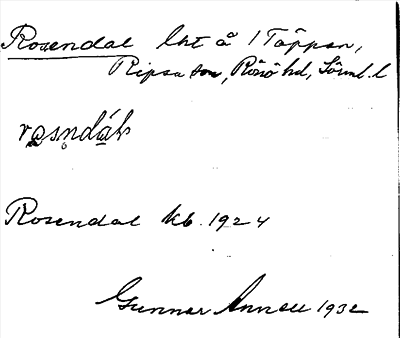 Rosendal lht å 1 Täppan,
Ripsa sn, Rönö hd, Sörml. l
Rosendal kb. 1924
Gunnar 1932